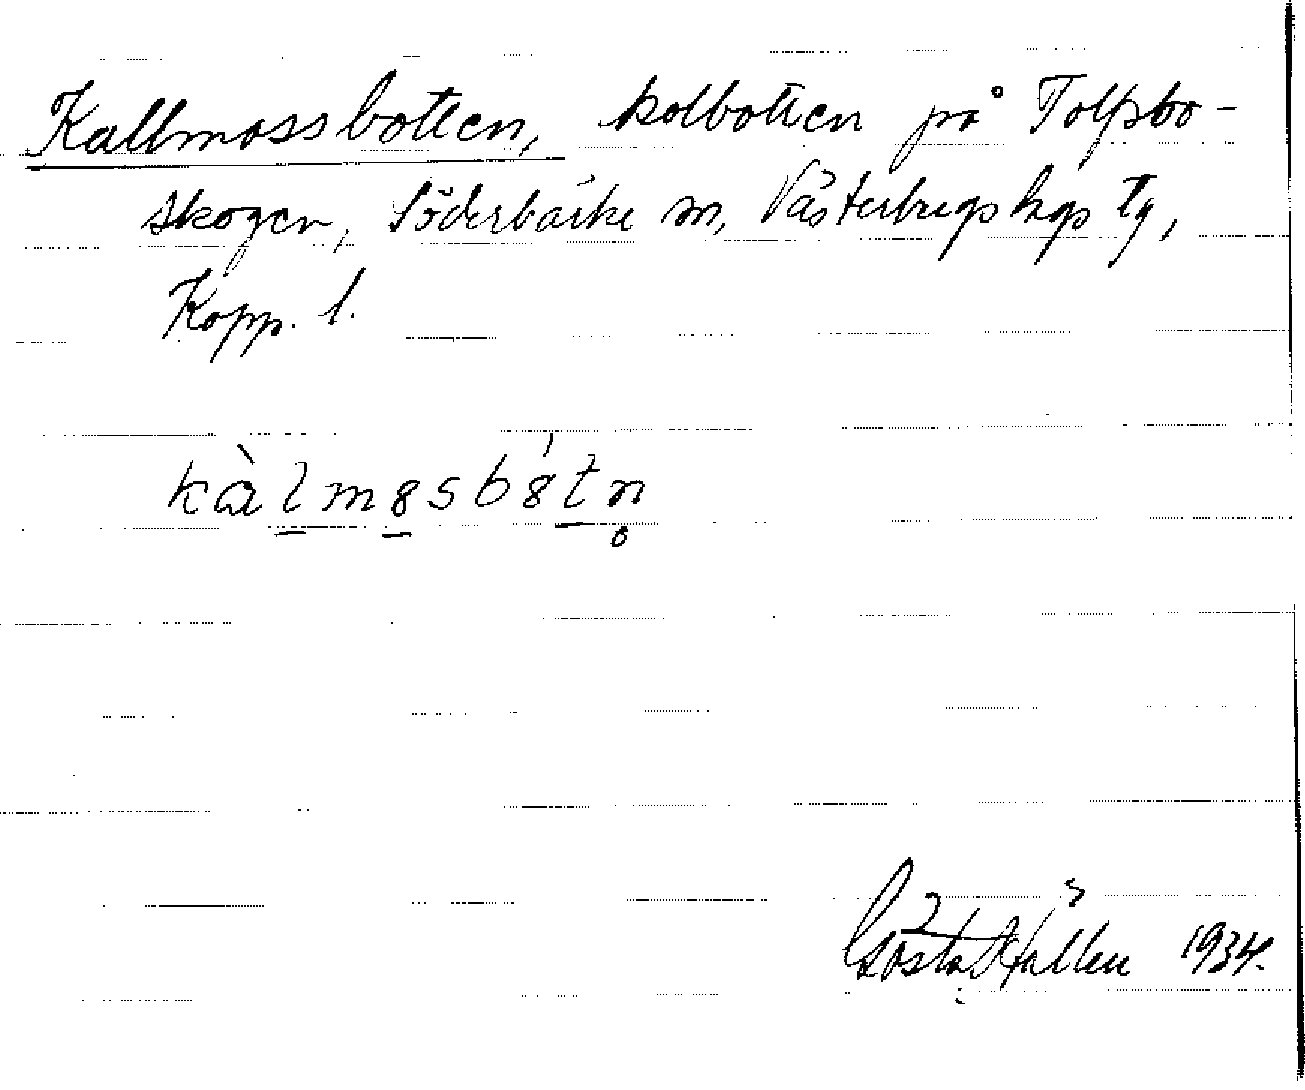 Kallmossbotten, kolbotten på Tolfsbo-
skogen, Söderbärke sn, Västerbergslags tg,
Kopp. l.
kàlmɞsbɞ́tn̥
Gösta Källén 1934.